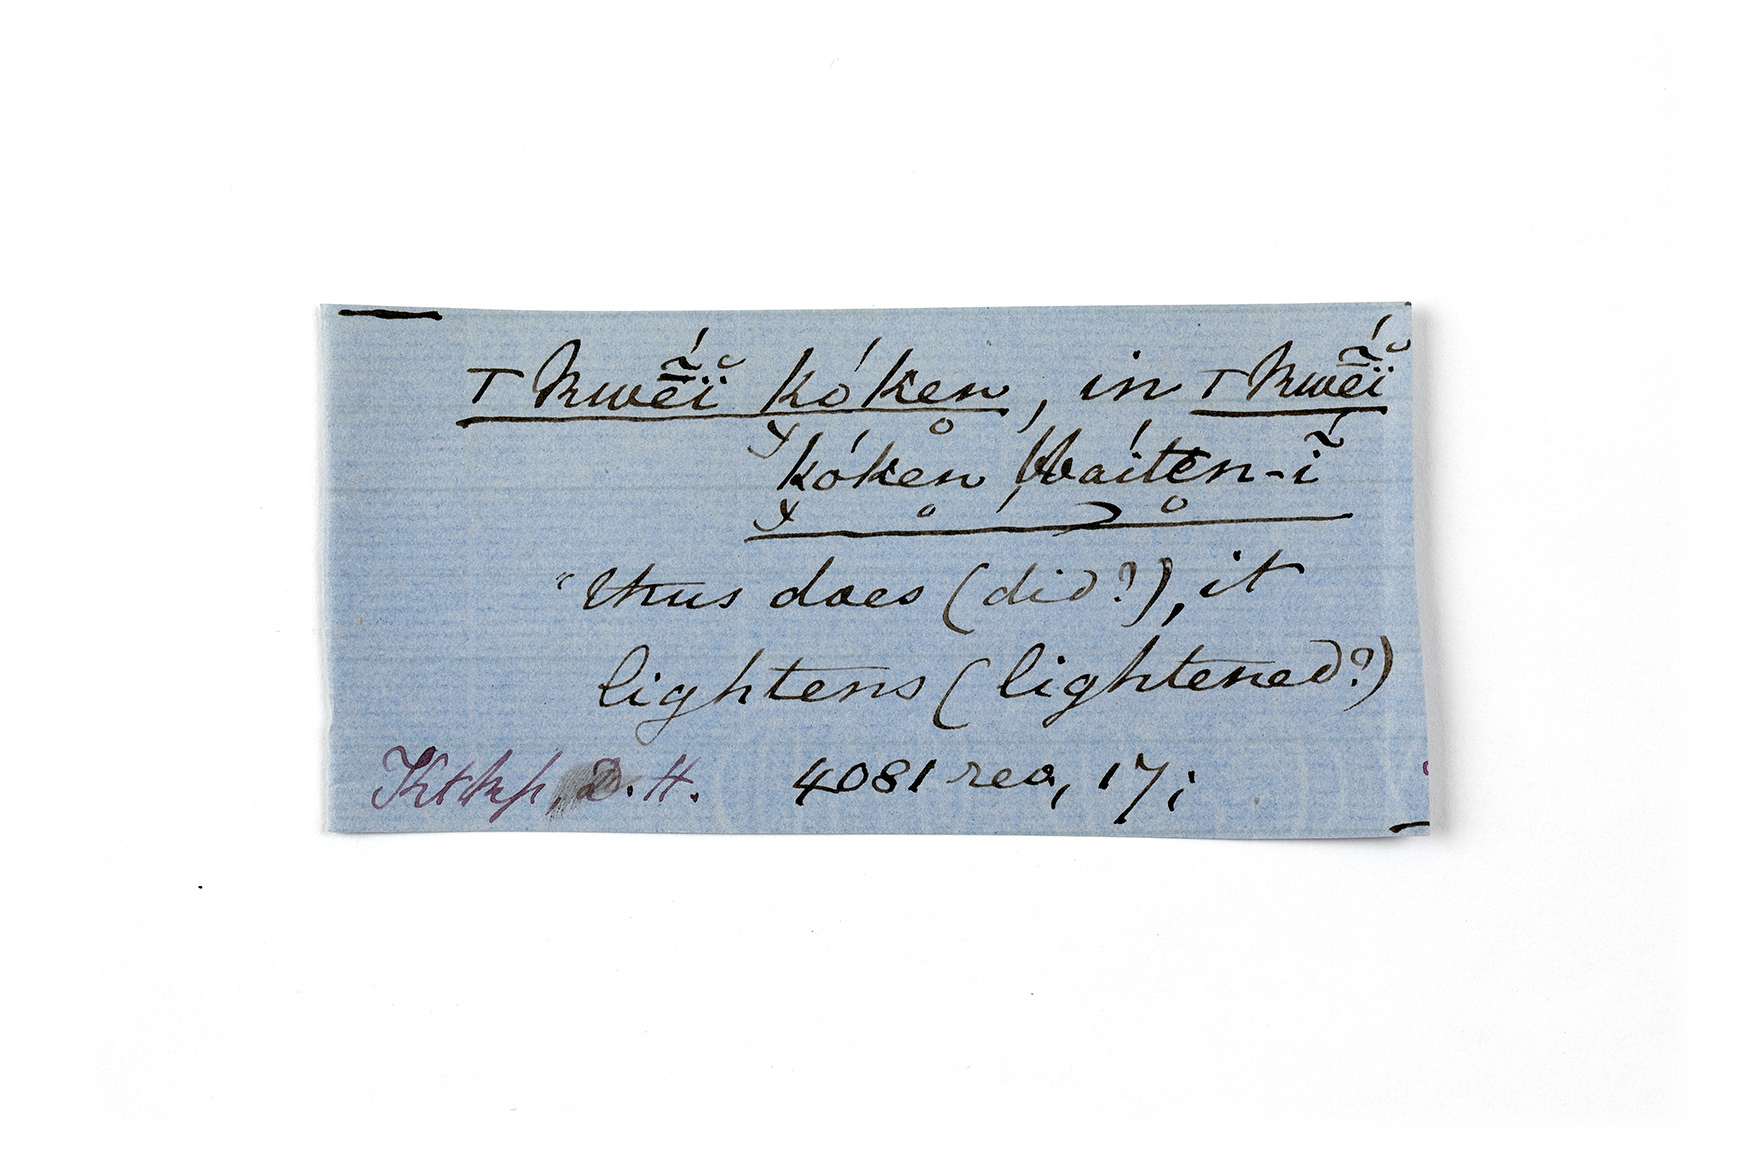 ⊤kwẽ́ĭ kóken̥, in ⊤kwẽ́ĭ
kóken̥ kaíten̥-ĩ́
"thus does (did?), it
lightens (lightened?)
Ktkp, D. H. 4081 reo, 17;